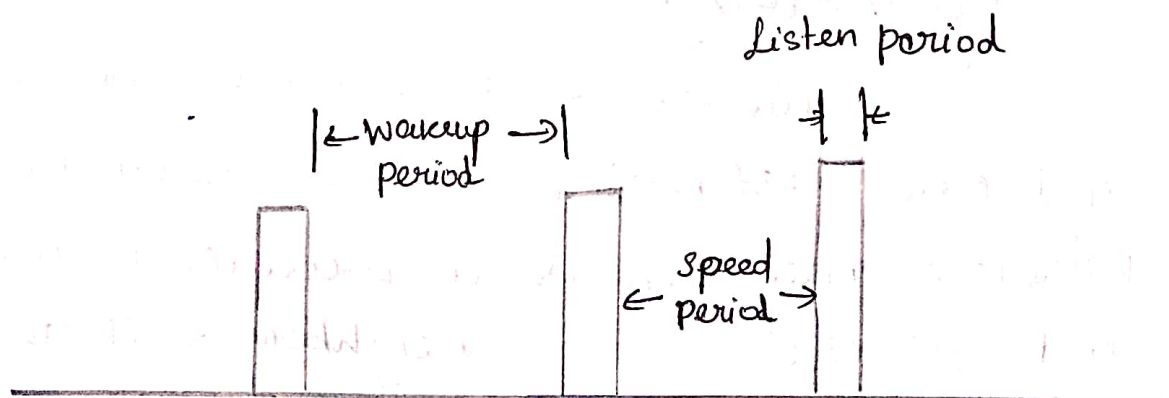 Listen period
wakeup
period
speed
period